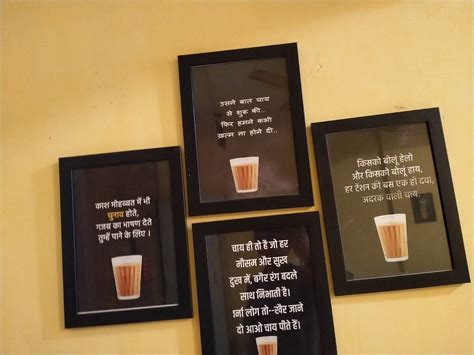 उसने बात चाय
से शुरू की..
फिर हमने कभी
खत्म ना होने दी..
काश मोहब्बत में भी
चुनाव होते,
गजब का भाषण देते
तुम्हें पाने के लिए ।
चाय ही तो है जो हर
मौसम और सुख
दुख में, बगैर रंग बदले
साथ निभाती है।
र्ना लोग तो--खैर जाने
दो आओ चाय पीते हैं।
किसको बोलूं हेलो
और किसको बोलूं हाय,
हर टेंशन की बस एक ही दवा,
अदरक वाली चाय..